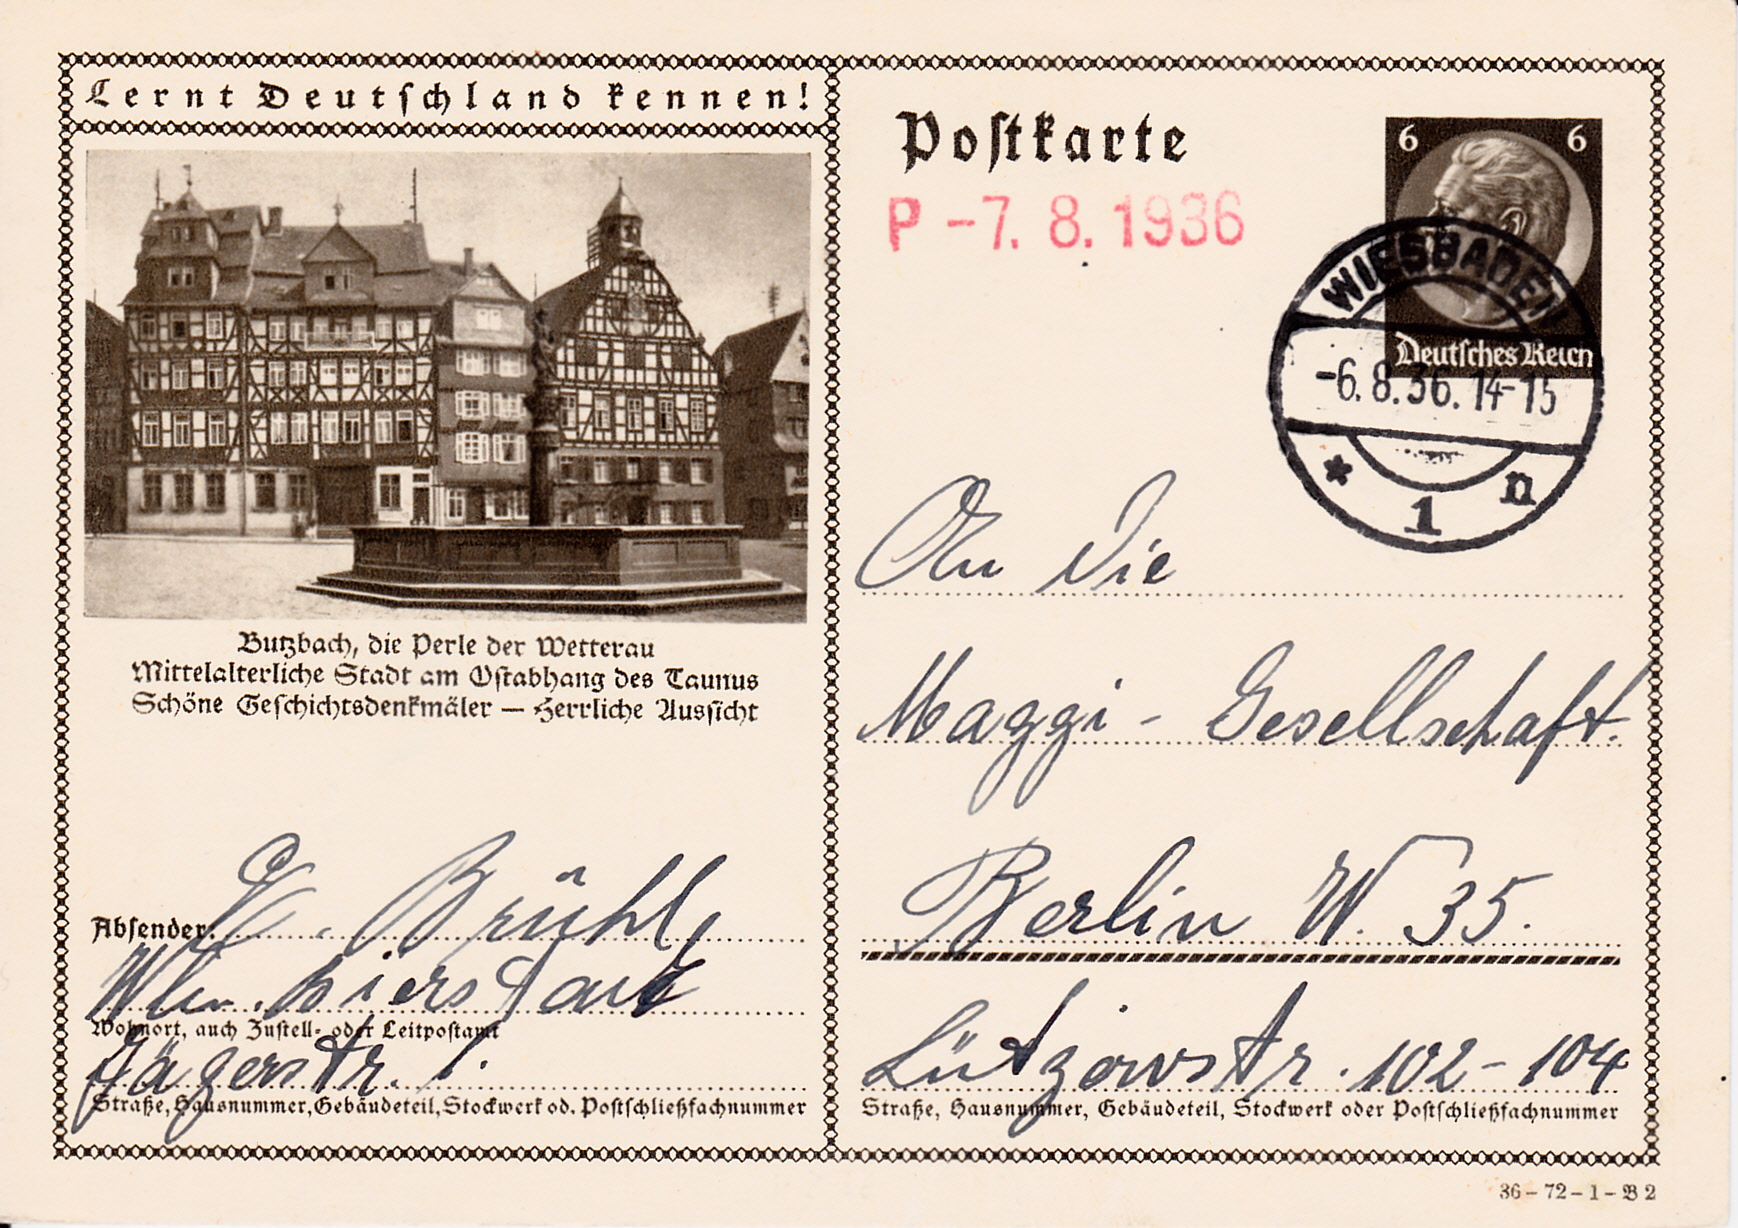 Lernt Deutschland kennen!
Butzbach, die Perle der Wetterau
Mittelalterliche Stadt am Ostabhang des Taunus
Schöne Geschichtsdenkmäler — Herrliche Aussicht
Absender: E. Brühl,
Wbn. Bierstadt
Wohnort, auch Zustell- oder Leitpostamt
Jägerstr. 1.
Straße, Hausnummer, Gebäudeteil, Stockwerk od. Postschließfachnummer
Postkarte
P -7. 8. 1936
6 6
Deutsches Reich
WIESBADEN
-6.8.36. 14-15
* 1 n
An die
Maggi - Gesellschaft.
Berlin W. 35.
Lützowstr. 102-104
Straße, Hausnummer, Gebäudeteil, Stockwerk oder Postschließfachnummer
36 – 72 – 1 – B 2